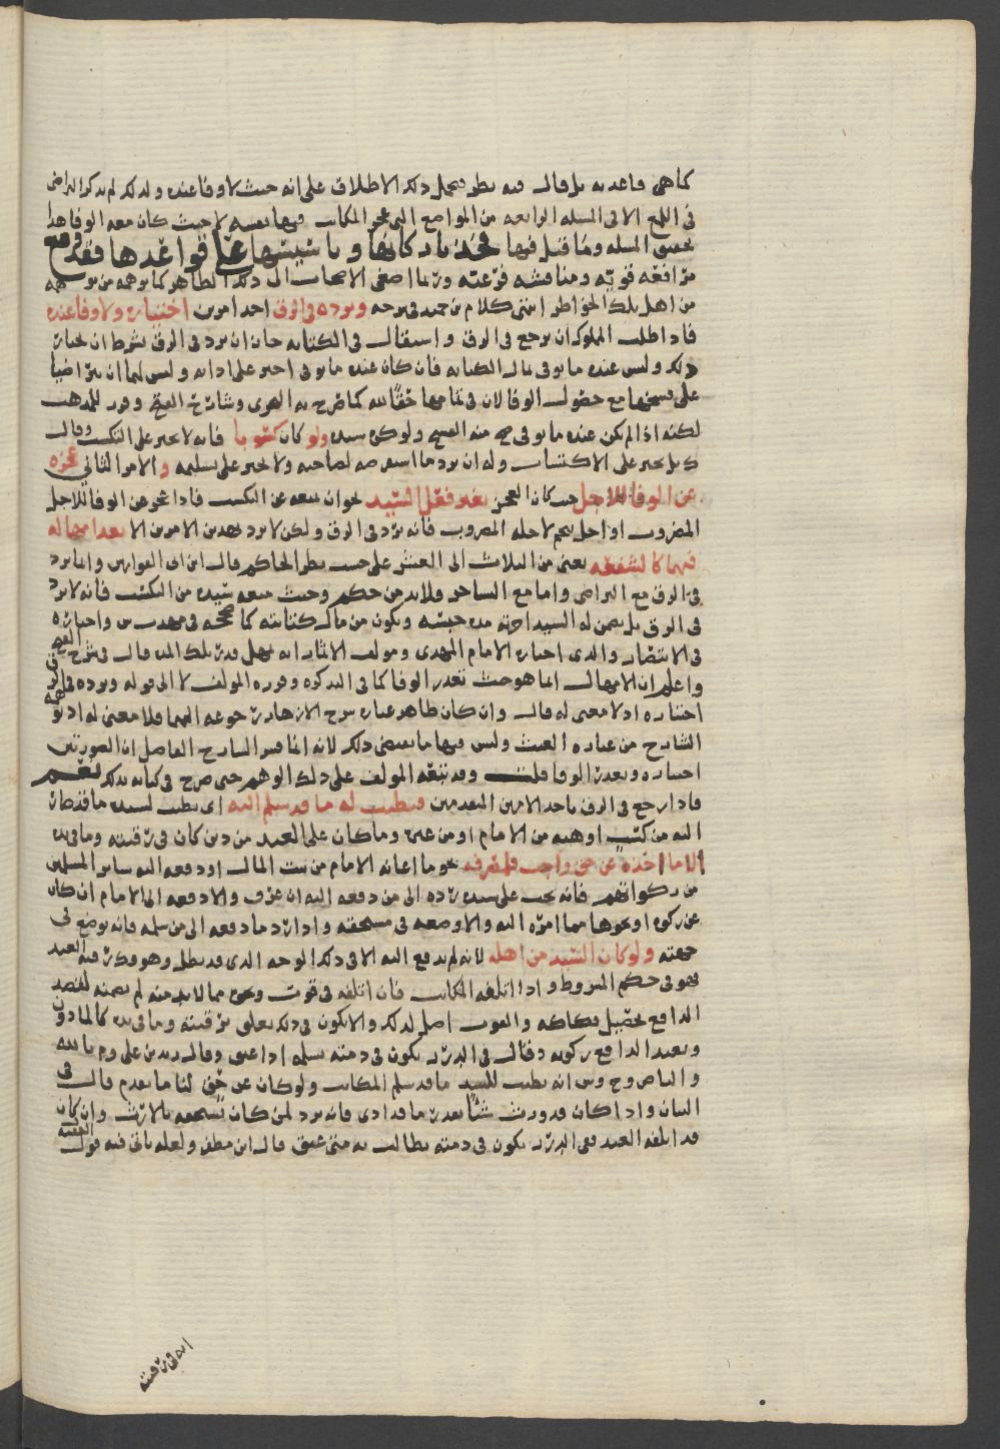 كما هي قاعدته بل قال فيه نظر فيحمل ذلك الاطلاق على انه حيث لا وفا عنده ولذلك لم يذكر التراضي
في اللمع الا في المسله الرابعه من المواضع التي عجز المكاتب فيها نفسه لا حيث كان معه الوفا هذا
تحقيق المسله وما قيل فيها فخذها باركانها وباشيشها على قواعدها فقد وقع
من اهل تلك الخواطر انتهى كلام بن حميد في شرحه ويرده في الرق احد امرين اختياره ولا وفا عنده
فاذا طلب المملوك ان يرجع في الرق واستقال في الكتابه جاز ان يرد في الرق بشرط ان يختار
ذلك وليس عنده ما يوفي مال الكتابه فان كان عنده ما يوفي اجبر على ادايه وليس لهما ان يتراضيا
على فسخها مع حصول الوفا لان في تمامها حقا لله كما صرح به الهوى وشارح الفتح وقرر للمذهب
لكنه اذا لم يكن عنده ما يوفي صح منه الفسخ ولو كره سيده ولو كان كسوبا فانه لا يجبر على التكسب وقال
ك بل يجبر على الاكتساب وله ان يرد ما استقرضه لصاحبه ولا يجبر على تسليمه والامر الثاني عجزه
عن الوفا للاجل حيث كان العجز بغير فعل السيد نحو ان يمنعه عن التكسب فاذا عجز عن الوفا للاجل
المضروب او اجل نجم لاجله المضروب فانه يرد في الرق ولكن لا يرد بهذين الامرين الا بعد امهاله
فيهما كالشفعه يعني من الثلاث الى العشر على حسب نظر الحاكم قال ابن ابي الفوارس وانما يرد
في الرق مع التراضي واما مع التشاجر فلا بد من حكم وحيث منعه سيده من التكسب فانه لا يرد
في الرق بل يضمن له السيد اجرته مدة حبسه ويكون من مال كتابته كما صححه في واختاره
في الانتصار والذي اختاره الامام المهدي ومولف الاثمار انه يمهل قدر تلك المده قال في شرح الفتح
واعلم ان الامهال انما هو حيث تعذر الوفا كما في التذكره وقرره المولف لا الى قوله ويرده في الرق
اختاره اذ لا معنى له قال وان كان ظاهر عباره شرح الازهار رجوعه اليهما فلا معنى له اذ توهمه
الشارح من عباره الغيث وليس فيها ما يقتضي ذلك لانه انما فسر الشارح الفاصل ان الصورتين
اختاره وتعذر الوفا قلت وقد نبقه المولف على ذلك الوهم حتى صرح في كتابه بذلك نعم
فاذا رجع في الرق باحد الامرين المتقدمين فيطيب له ما قد سلم اليه اي يطيب لسيده ما قد صار
اليه من كسب او هبه من الامام او من غيره وما كان على العبد من دين كان في رقبته وما في يده
الا ما اخذه عن حق واجب فلمصرفه نحو ما اعانه الامام من بيت المال او دفعه اليه ساير المسلمين
من زكواتهم فانه يجب على سيده رده الى من دفعه اليه ان عرف والا دفعه الى الامام ان كان
عن زكوه او نحوها مما امره اليه والا وضعه في مستحقه واذا رد ما دفعه الى من سلمه فانه يوضع في
جهته ولو كان السيد من اهله لانه لم يدفع اليه الا في ذلك الوجه الذي قد بطل وهو فك رقبه العبد
فهو في حكم المشروط واذا اتلفه المكاتب فان اتلفه في قوت ونحوه مما لا بد منه لم يضمنه لقصد
الدافع تحصيل فكاكه والقوت اصل لذلك والا يكون في ذلك تعلق برقبته وما في يده كالماذون
ويعيد الدافع زكوته وقال في الدرر يكون في ذمته يسلمه اذا عتق وقال زيد بن علي وم بالله
والناصر وح وش انه يطيب للسيد ما قد سلم المكاتب ولو كان عن حق لنا ما تقدم قال في
البيان واذا كان قد ورث شيا بقدر ما قد ادى فانه يرد لمن كان يستحقه بالارث وان كان
قد اتلفه العبد ففي الدرر يكون في ذمته يطالب به متى عتق قال ابن مظفر ولعله ياتي فيه قول الفقيه
انه في رقبته